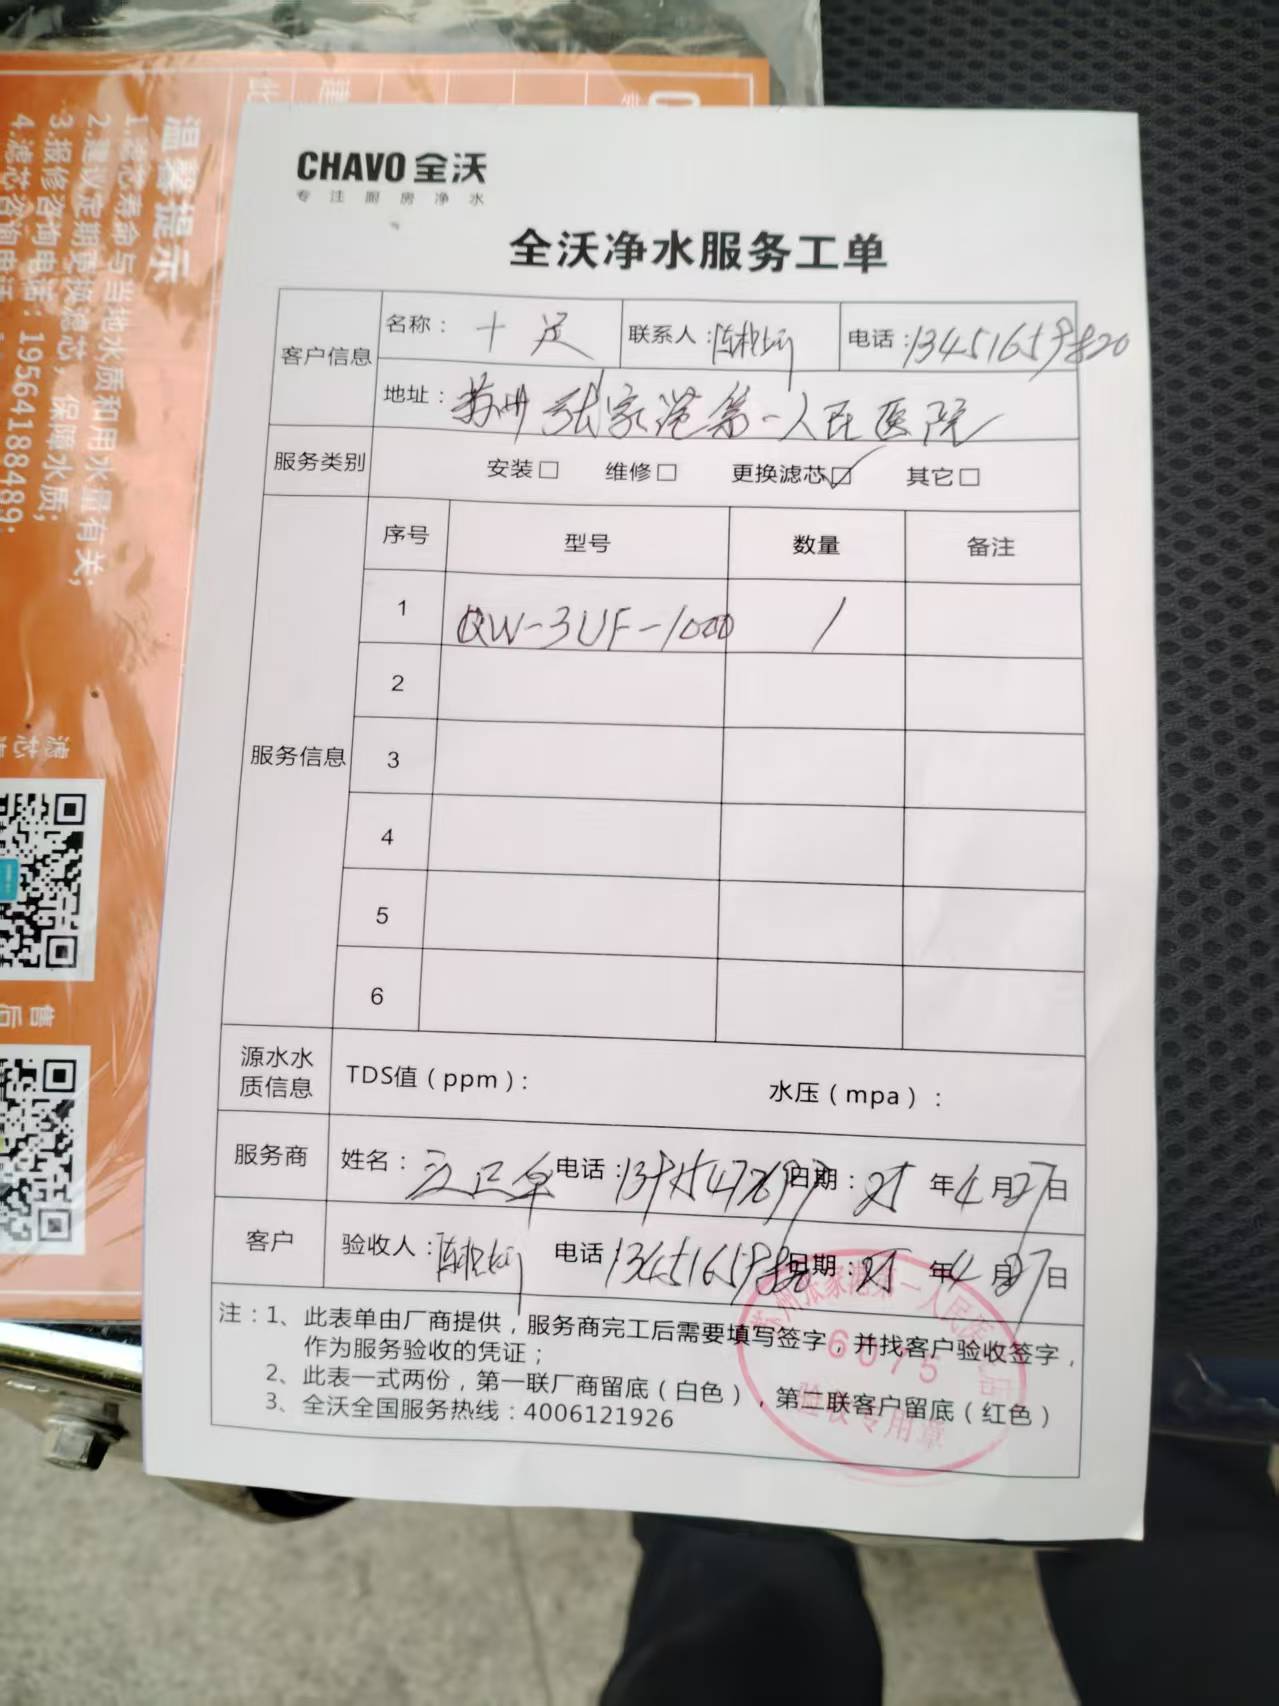 CHAVO 全沃
专注厨房净水
全沃净水服务工单
客户信息
名称：十足
联系人：
电话：13451659820
地址：苏州张家港第一人民医院
服务类别
安装□ 维修□ 更换滤芯☑ 其它□
服务信息
序号 型号 数量 备注
1 QW-3UF-1000 1
2
3
4
5
6
源水水质信息
TDS值（ppm）： 水压（mpa）：
服务商 姓名： 电话： 日期：25年4月27日
客户 验收人： 电话 日期：25年4月27日
注：1、此表单由厂商提供，服务商完工后需要填写签字，并找客户验收签字，
作为服务验收的凭证；
2、此表一式两份，第一联厂商留底（白色），第二联客户留底（红色）
3、全沃全国服务热线：4006121926
苏州张家港第一人民医
6075
验收专用章
温馨提示
1.滤芯寿命与当地水质和用水量有关；
2.建议定期更换滤芯，保障水质；
3.报修咨询电话：19564188489.
4.滤芯咨询电话
售后